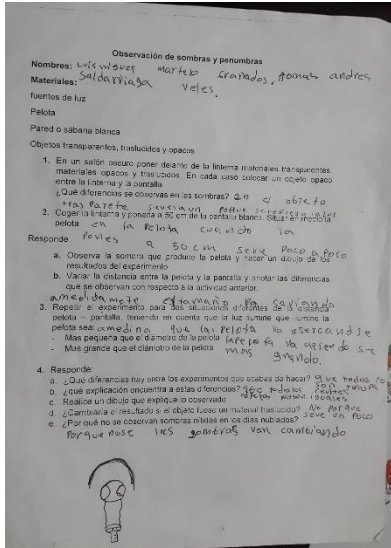 Observación de sombras y penumbras
Nombres: Luis miguel martelo Granados, tomas andres
Saldarriaga veles,
Materiales:
fuentes de luz
Pelota
Pared o sábana blanca
Objetos transparentes, traslucidos y opacos
1. En un salón oscuro poner delante de la linterna materiales transparentes
materiales opacos y traslucidos. En cada caso colocar un objeto opaco
entre la linterna y la pantalla
¿Qué diferencias se observas en las sombras? en el objeto
tras Parete
2. Coger la linterna y ponerla a 50 cm de la pantalla blanca. Situar en medio la
pelota en la Pelota cuando la
Responde Poves a 50 cm seve Poco a Poco
a. Observa la sombra que produce la pelota y hacer un dibujo de los
resultados del experimento
b. Variar la distancia entre la pelota y la pantalla y anotar las diferencias
que se observan con respecto a la actividad anterior.
el tamaño va
3. Repetir el experimento para dos situaciones diferentes de la distancia
pelota – pantalla, teniendo en cuenta que la luz que ilumine la
pelota sea: amedina que las Pelota va asercandose
- Mas pequeña que el diámetro de la pelota la Pelota va
- Mas grande que el diámetro de la pelota mas grande.
4. Responde:
a. ¿Qué diferencias hay entre los experimentos que acabas de hacer? que todos
b. ¿qué explicación encuentra a estas diferencias? que todos los
son iguales
c. Realice un dibujo que explique lo observado
d. ¿Cambiaría el resultado si el objeto fuese un material traslucido? No Porque
seve un Poco
e. ¿Por qué no se observan sombras nítidas en los días nublados?
Porque nose las sombras van cambiando